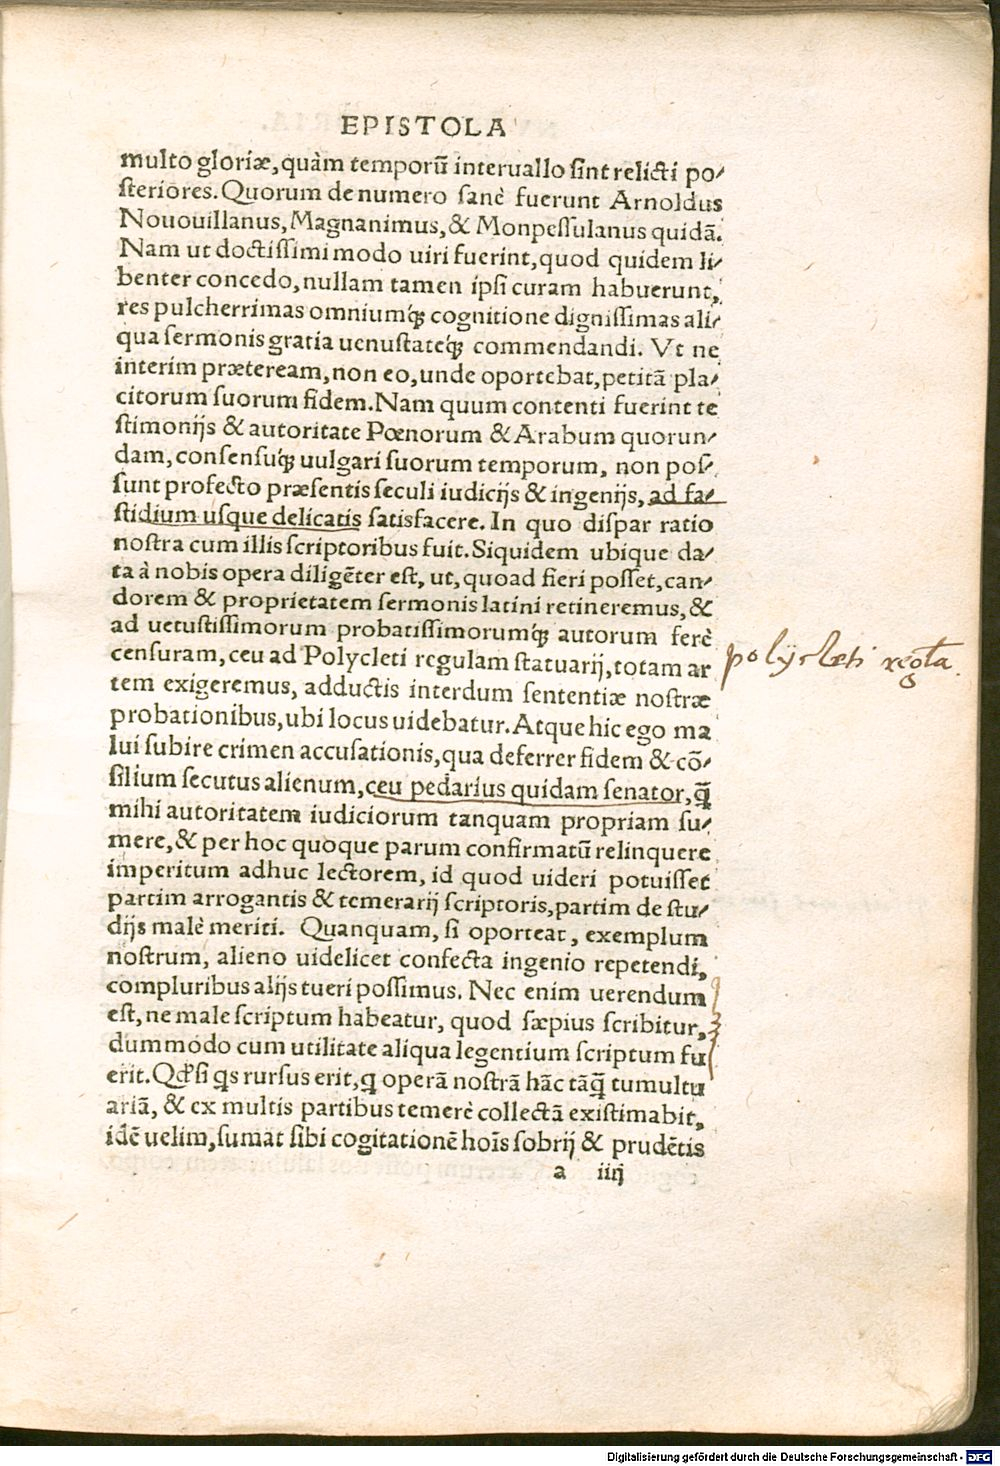 EPISTOLA
multo gloriæ, quàm temporū interuallo sint relicti po⸗
steriores. Quorum de numero sanè fuerunt Arnoldus
Nououillanus, Magnanimus, & Monpessulanus quidā.
Nam ut doctissimi modo uiri fuerint, quod quidem li⸗
benter concedo, nullam tamen ipsi curam habuerunt,
res pulcherrimas omniumq́ꝫ cognitione dignissimas ali⸗
qua sermonis gratia uenustateq́ꝫ commendandi. Vt ne
interim præteream, non eo, unde oportebat, petitā pla⸗
citorum suorum fidem. Nam quum contenti fuerint te
stimonijs & autoritate Pœnorum & Arabum quorun⸗
dam, consensuq́ꝫ uulgari suorum temporum, non pos⸗
sunt profecto præsentis seculi iudicijs & ingenijs, ad fa⸗
stidium usque delicatis satisfacere. In quo dispar ratio
nostra cum illis scriptoribus fuit. Siquidem ubique da⸗
ta à nobis opera diligēter est, ut, quoad fieri posset, can⸗
dorem & proprietatem sermonis latini retineremus, &
ad uetustissimorum probatissimorumq́ꝫ autorum ferè
censuram, ceu ad Polycleti regulam statuarij, totam ar
tem exigeremus, adductis interdum sententiæ nostræ
probationibus, ubi locus uidebatur. Atque hic ego ma
lui subire crimen accusationis, qua deferrer fidem & cō⸗
silium secutus alienum, ceu pedarius quidam senator, q̄
mihi autoritatem iudiciorum tanquam propriam su⸗
mere, & per hoc quoque parum confirmatū relinquere
imperitum adhuc lectorem, id quod uideri potuisset
partim arrogantis & temerarij scriptoris, partim de stu⸗
dijs malè meriti. Quanquam, si oporteat, exemplum
nostrum, alieno uidelicet confecta ingenio repetendi,
compluribus alijs tueri possimus. Nec enim uerendum
est, ne male scriptum habeatur, quod sæpius scribitur,
dummodo cum utilitate aliqua legentium scriptum fu
erit. Qđ si q̄s rursus erit, q operā nostrā hāc tāq̄ tumultu
ariā, & ex multis partibus temerè collectā existimabit,
idē uelim, sumat sibi cogitationē hoīs sobrij & prudētis
a iiij
polycleti regl̄a.
Digitalisierung gefördert durch die Deutsche Forschungsgemeinschaft - DFG